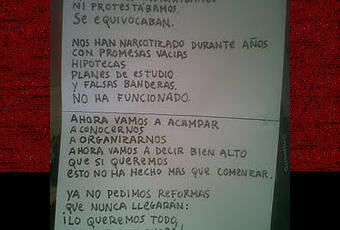 NI PROTESTÁBAMOS.
SE EQUIVOCABAN.
NOS HAN NARCOTIZADO DURANTE AÑOS
CON PROMESAS VACIAS
HIPOTECAS
PLANES DE ESTUDIO
Y FALSAS BANDERAS.
NO HA FUNCIONADO.
AHORA VAMOS A ACAMPAR
A CONOCERNOS
A ORGANIZARNOS
AHORA VAMOS A DECIR BIEN ALTO
QUE SI QUEREMOS
ESTO NO HA HECHO MAS QUE COMENZAR.
YA NO PEDIMOS REFORMAS
QUE NUNCA LLEGARAN:
¡LO QUEREMOS TODO,